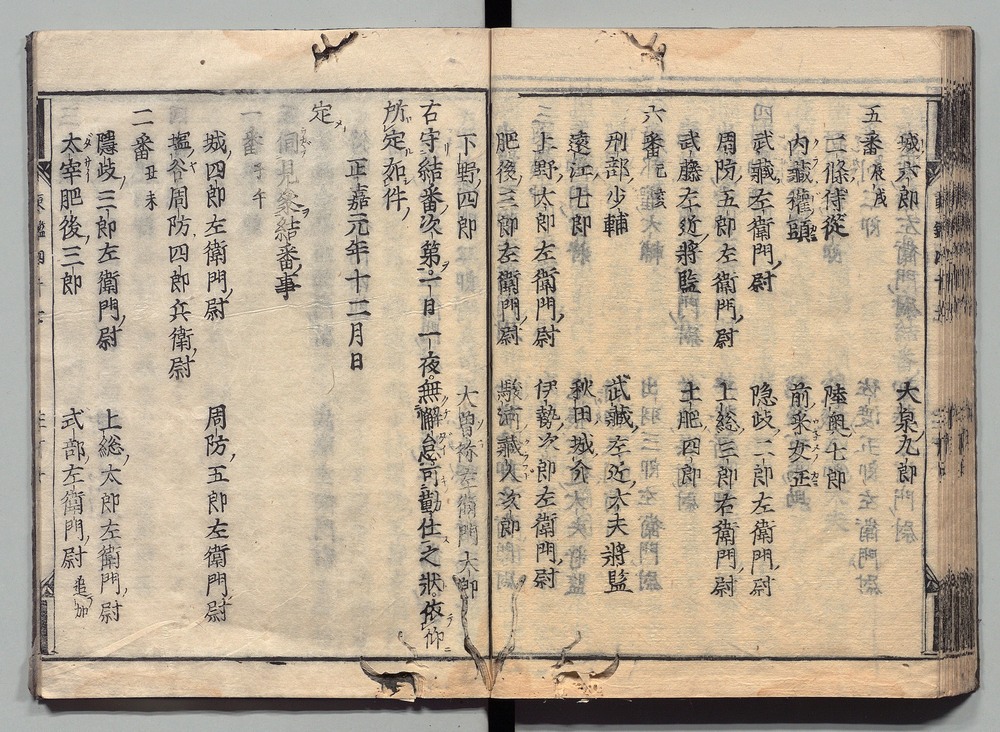 城六郎　大泉九郎
五番 辰戌
二條侍從　陸奥七郎
内藏權頭　前采女正
武藏左衛門尉　隠岐二郎左衛門尉
周防五郎左衛門尉　上総三郎右衛門尉
武藤左近將監　土肥四郎
六番 巳亥
刑部少輔　武藏左近大夫將監
遠江七郎　秋田城介
上野太郎左衛門尉　伊勢次郎左衛門尉
肥後三郎左衛門尉　駿河藏人次郎
下野四郎　大曽祢左衛門太郎
右守結番次第一日一夜無懈怠可勤仕之狀依仰
所定如件
正嘉元年十二月日
定
伺見叅結番事
一番 子午
城四郎左衛門尉　周防五郎左衛門尉
塩谷周防四郎兵衛尉
二番 丑未
隱岐三郎左衛門尉　上総太郎左衛門尉
太宰肥後三郎　式部左衛門尉 追加